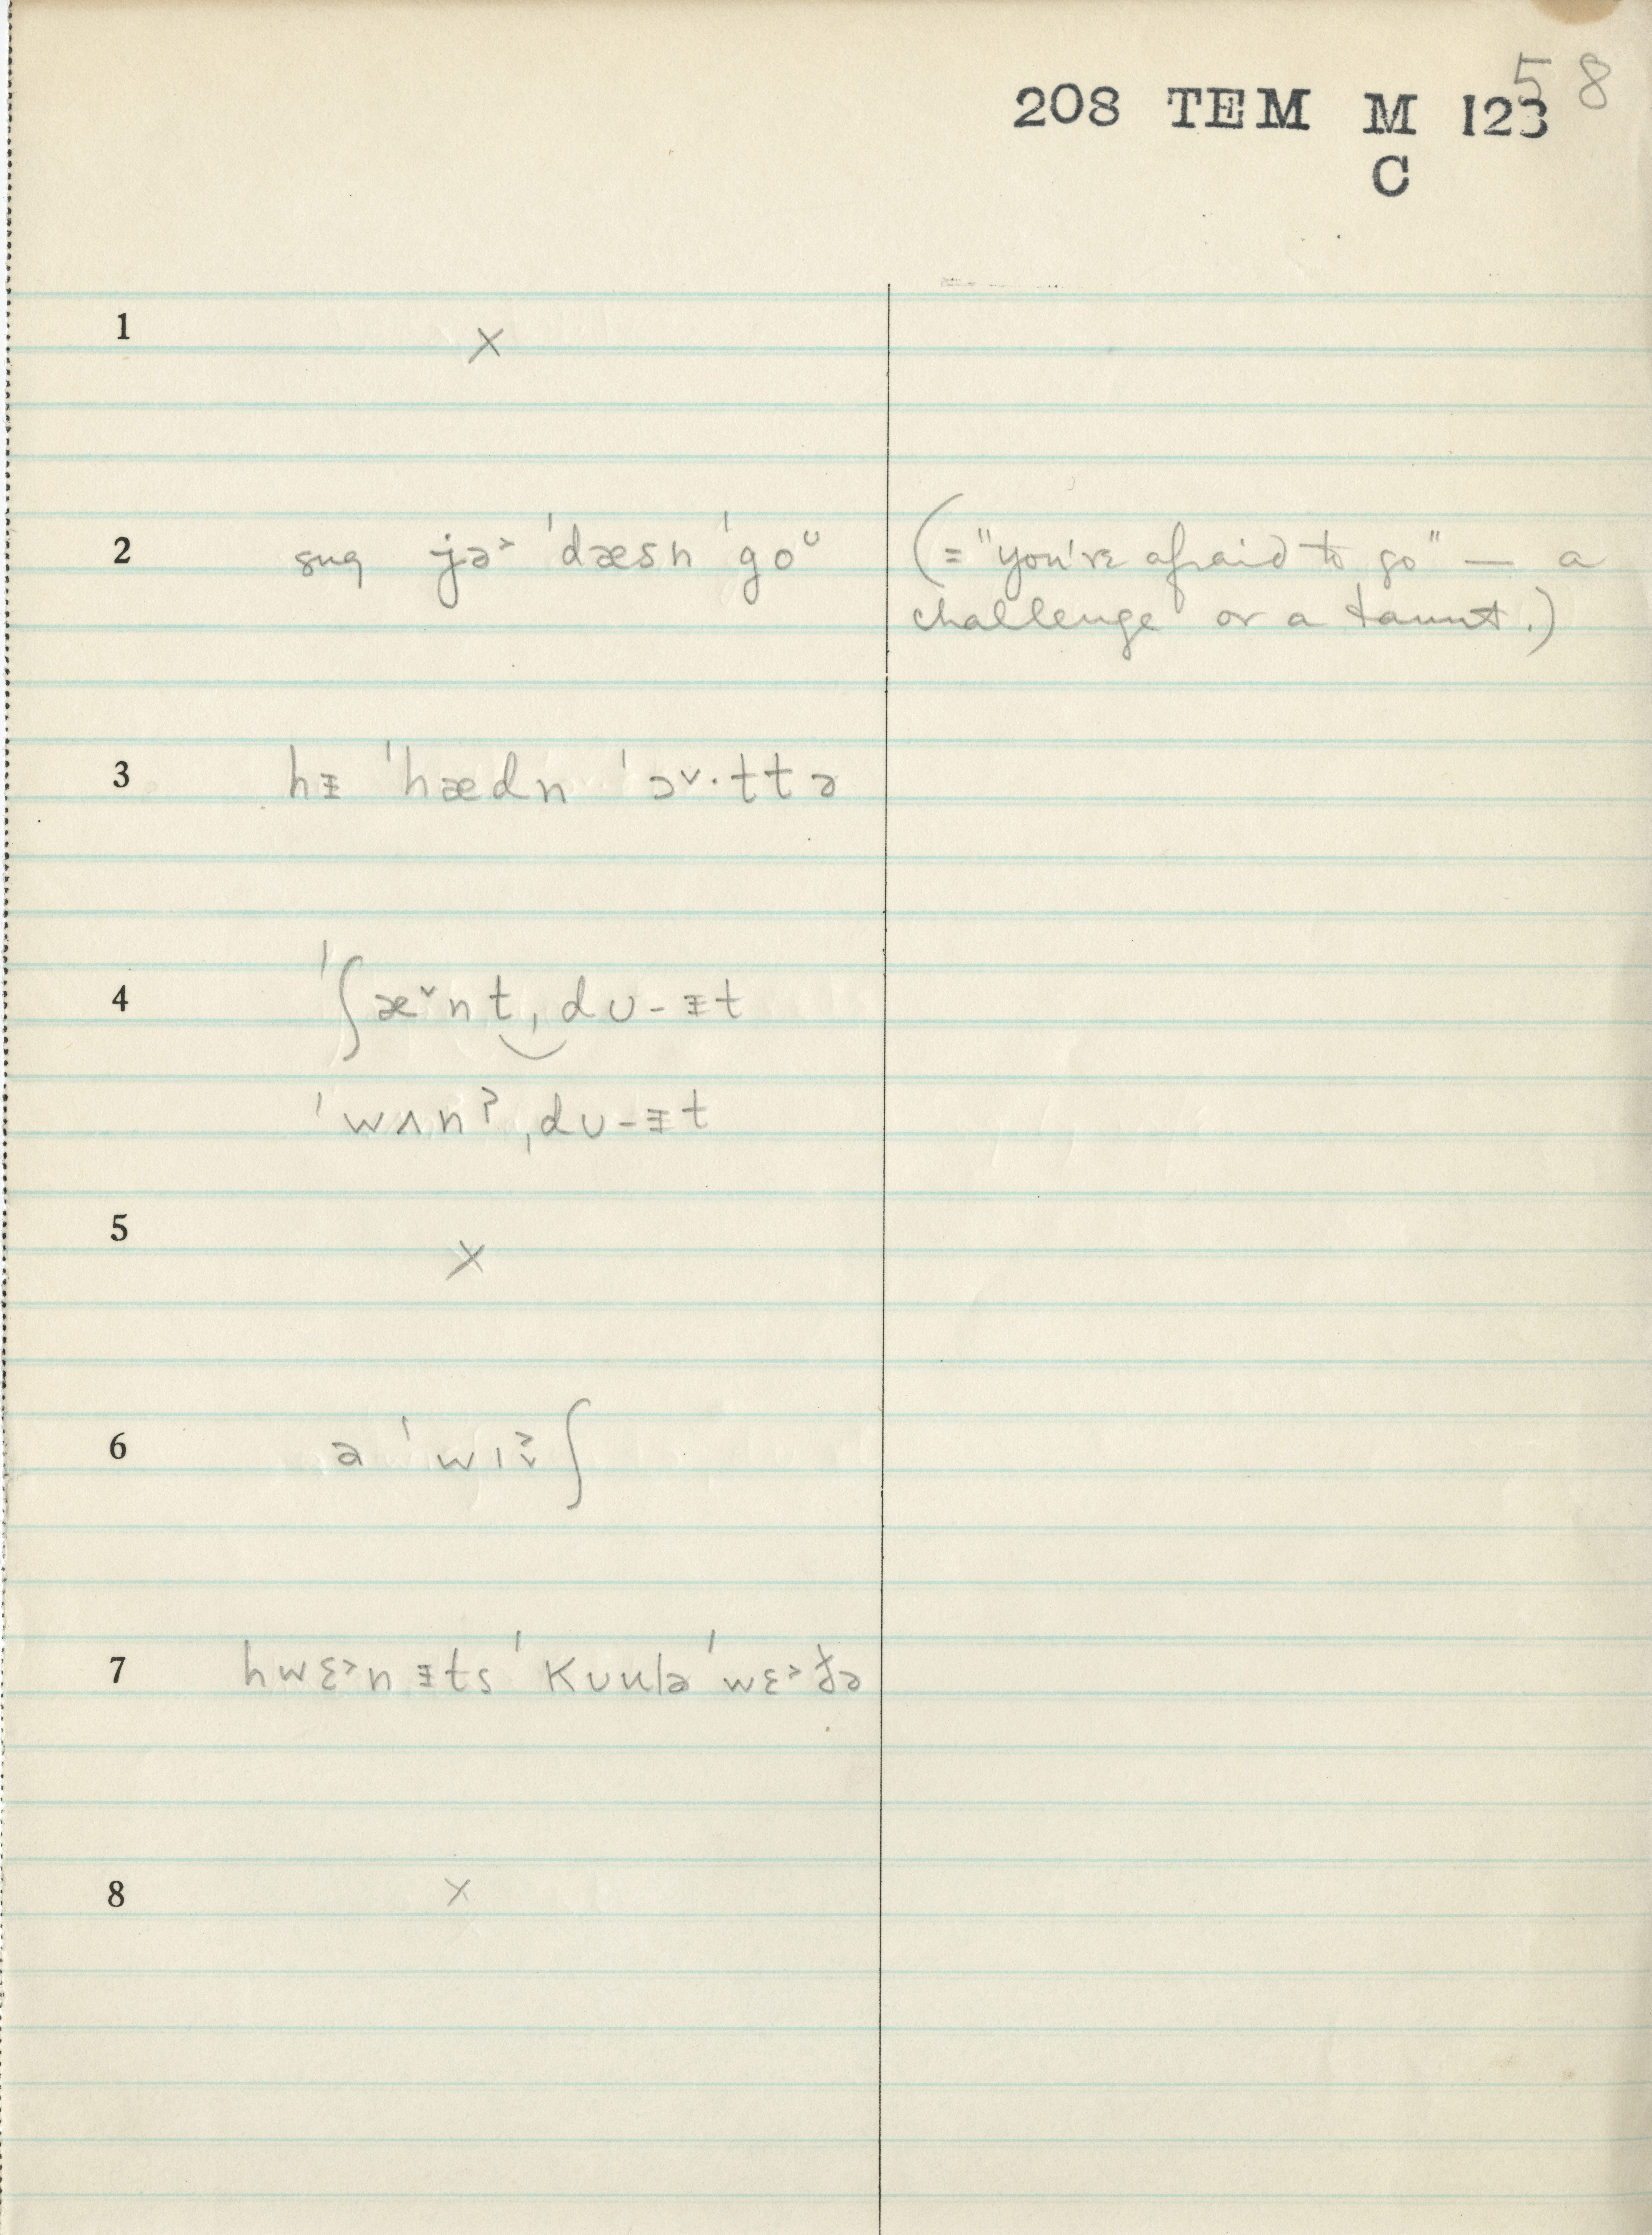 58
208 TEM M 123
C
1 ×
2 sug jə˃ ˈdæsn ˈgoᴜ (= "you're afraid to go" — a
challenge or a taunt.)
3 hᵻ ˈhædn ˈɔ˅·ttə
4 ˈʃæ˅nt‿ˌdᴜ-ᵻt
ˈwʌnʔ ˌdᴜ-ᵻt
5 ×
6 ə ˈwɪʃ
7 hwɛ˃n ᵻts ˈkᴜulə ˈwɛ˃ðə
8 ×